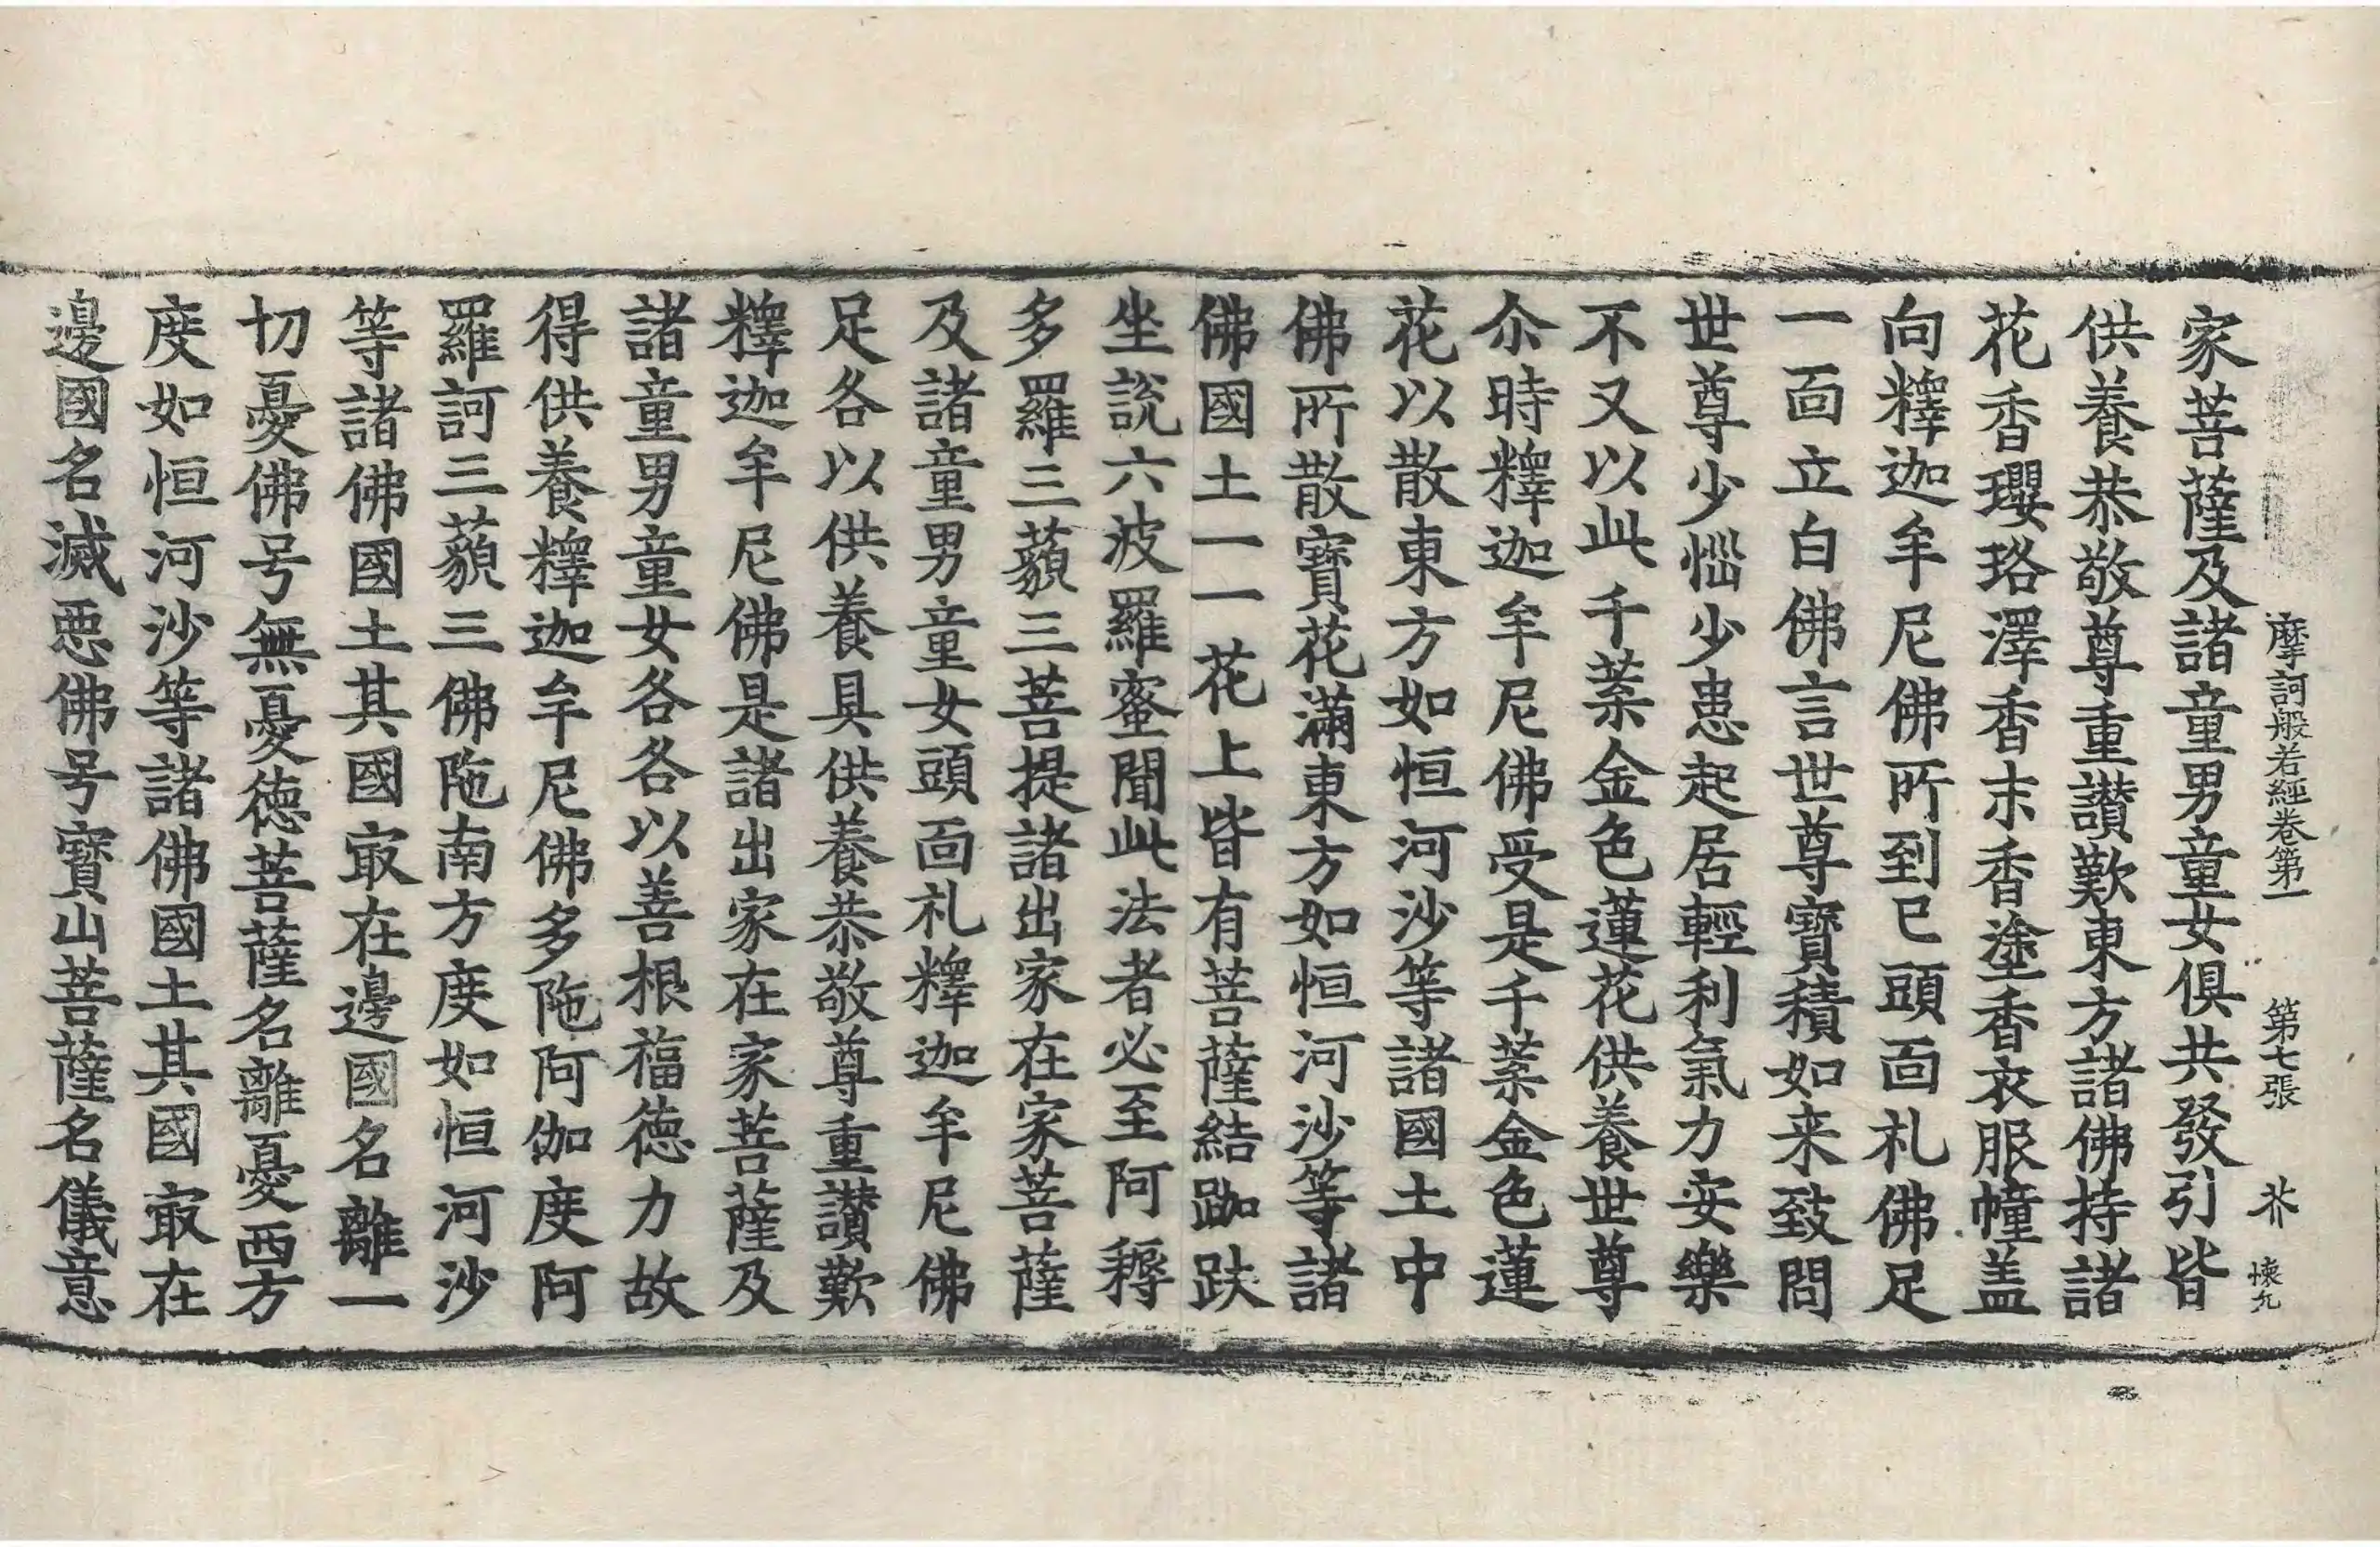 摩訶般若經卷第一 第七張 芥 懐九
家菩薩及諸童男童女俱共發引皆
供養恭敬尊重讃歎東方諸佛持諸
花香瓔珞澤香末香塗香衣服幢盖
向釋迦牟尼佛所到已頭面札佛足
一面立白佛言世尊寶積如来致問
世尊少惱少患起居輕利氣力安樂
不又以此千葉金色蓮花供養世尊
尒時釋迦牟尼佛受是千葉金色蓮
花以散東方如恒河沙等諸國土中
佛所散寶花滿東方如恒河沙等諸
佛國土一一花上皆有菩薩結跏趺
坐說六波羅蜜聞此法者必至阿耨
多羅三藐三菩提諸出家在家菩薩
及諸童男童女頭面札釋迦牟尼佛
足各以供養具供養恭敬尊重讃歎
釋迦牟尼佛是諸出家在家菩薩及
諸童男童女各各以善根福德力故
得供養釋迦牟尼佛多陁阿伽度阿
羅訶三藐三佛陁南方度如恒河沙
等諸佛國土其國冣在邊國名離一
切憂佛号無憂德菩薩名離憂西方
度如恒河沙等諸佛國土其國冣在
邊國名滅惡佛号寶山菩薩名儀意